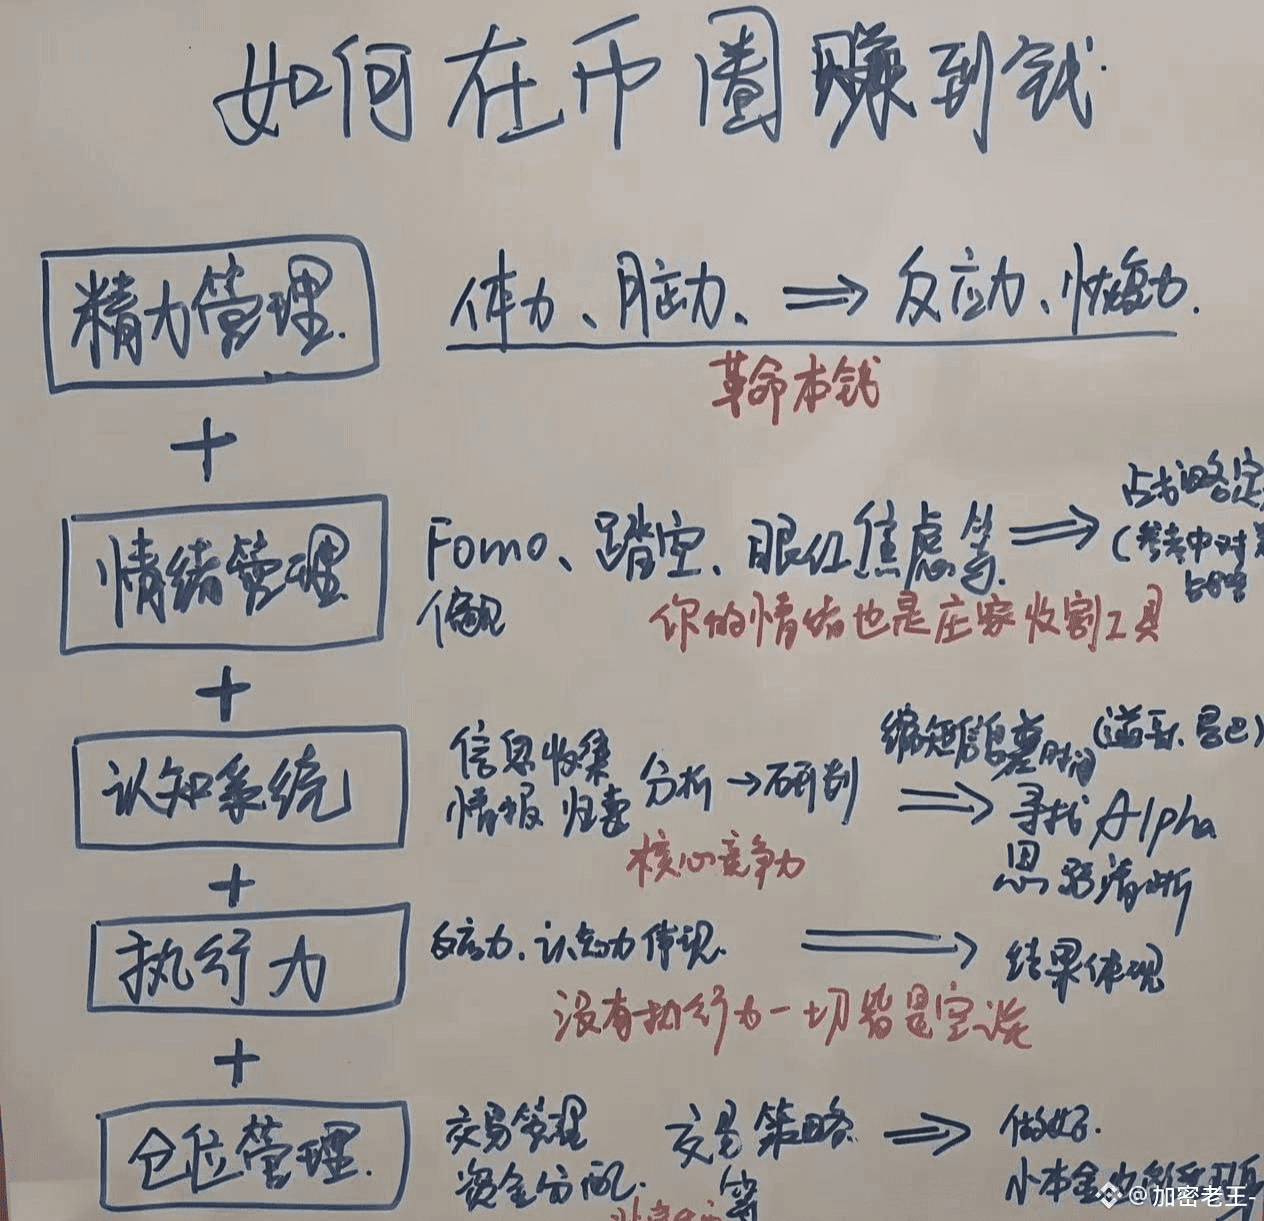 如何在币圈赚到钱.
精力管理.
体力、脑力、⟹反应力、恢复力.
革命本钱
+
情绪管理
Fomo、踏空、眼红焦虑等.
偏见
⟹
(参考中对
你的情绪也是庄家收割工具
+
认知系统
信息收集
情报 归类
分析→研判
核心竞争力
⟹
缩短信息差时间
寻找Alpha
思路清晰
+
执行力
反应力.认知力体现.
⟹
结果体现
没有执行力一切皆是空谈
+
仓位管理.
交易管理
资金分配.
交易策略
等
⟹
做好.
小本金也能
@加密老王-